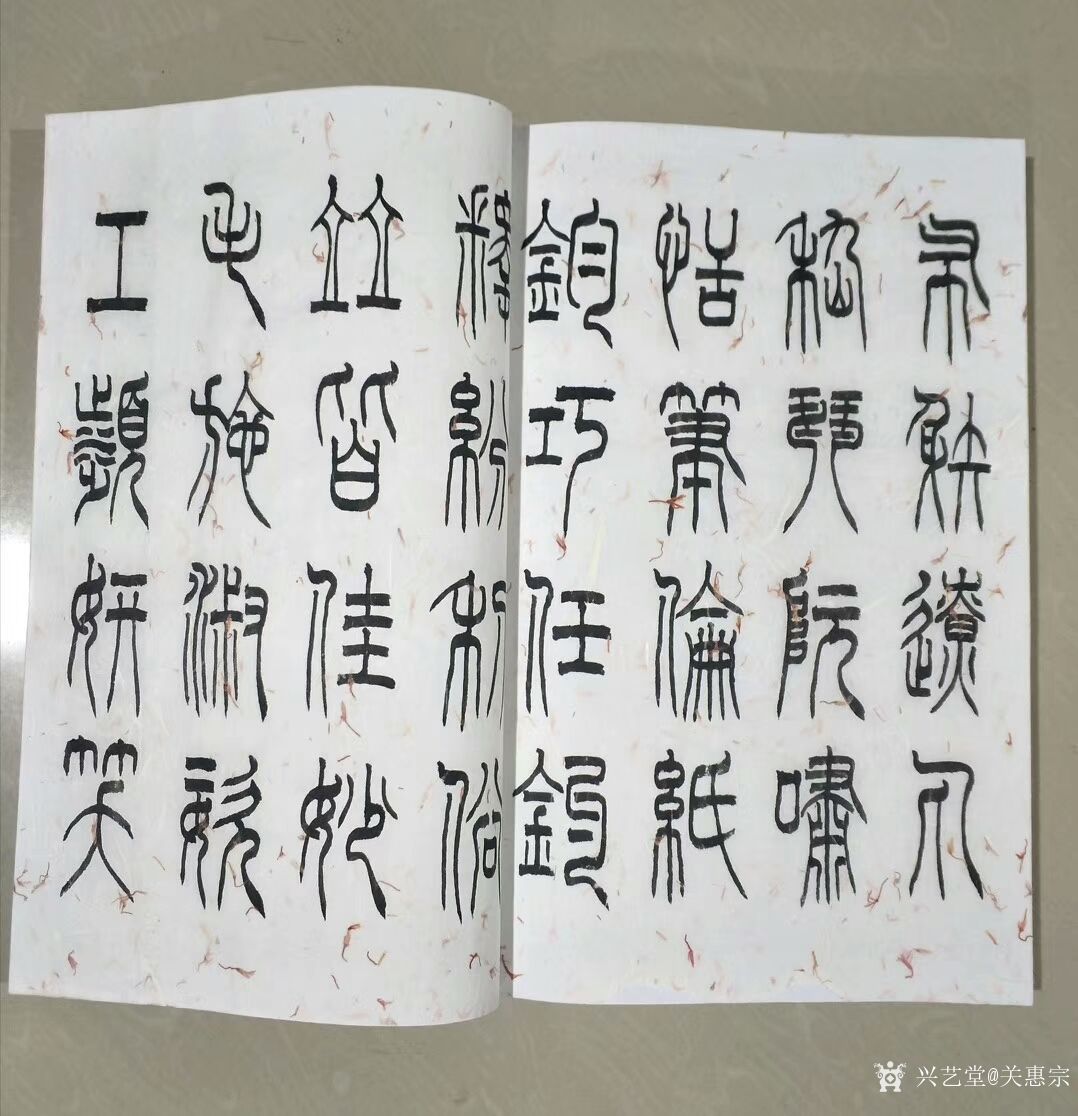 布射遼丸
嵇琴阮嘯
恬筆倫紙
鈞巧任釣
釋紛利俗
竝皆佳妙
毛施淑姿
工顰妍笑
兴艺堂@关惠宗